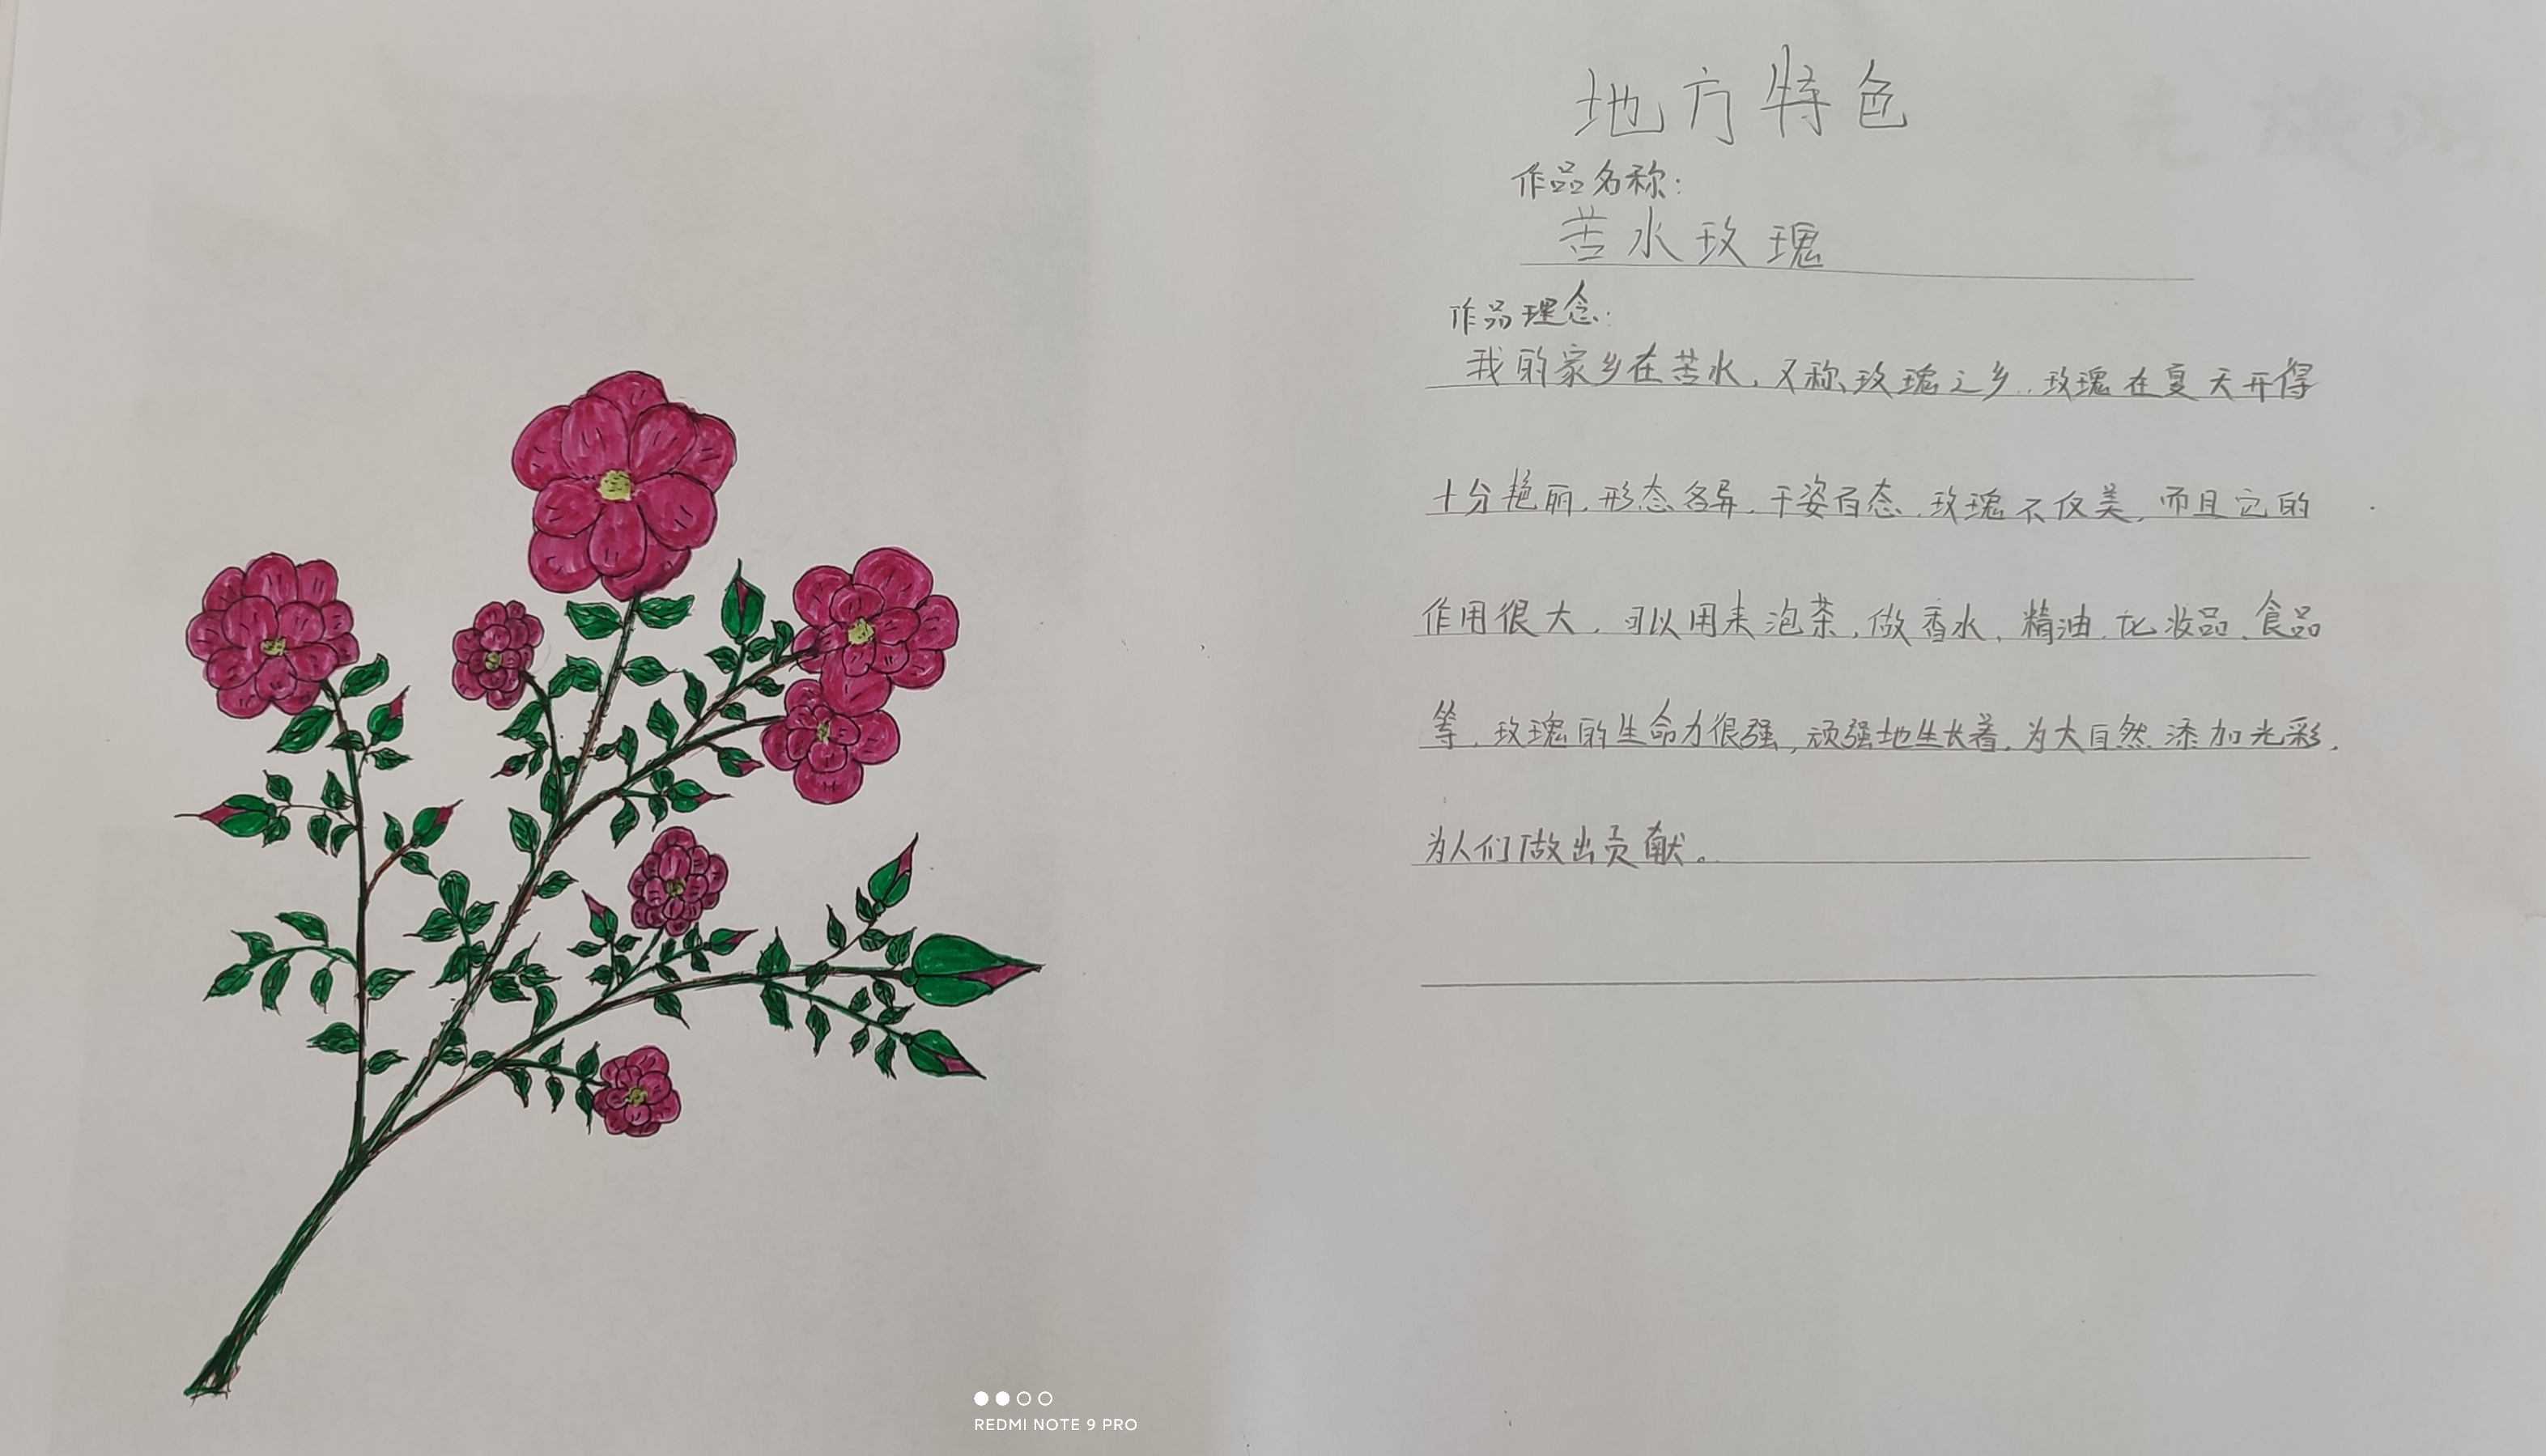 地方特色
作品名称:
苦水玫瑰
作品理念:
我的家乡在苦水,又称玫瑰之乡.玫瑰在夏天开得
十分艳丽,形态各异,千姿百态,玫瑰不仅美,而且它的
作用很大,可以用来泡茶,做香水,精油,化妆品,食品
等,玫瑰的生命力很强,顽强地生长着,为大自然添加光彩,
为人们做出贡献。
REDMI NOTE 9 PRO